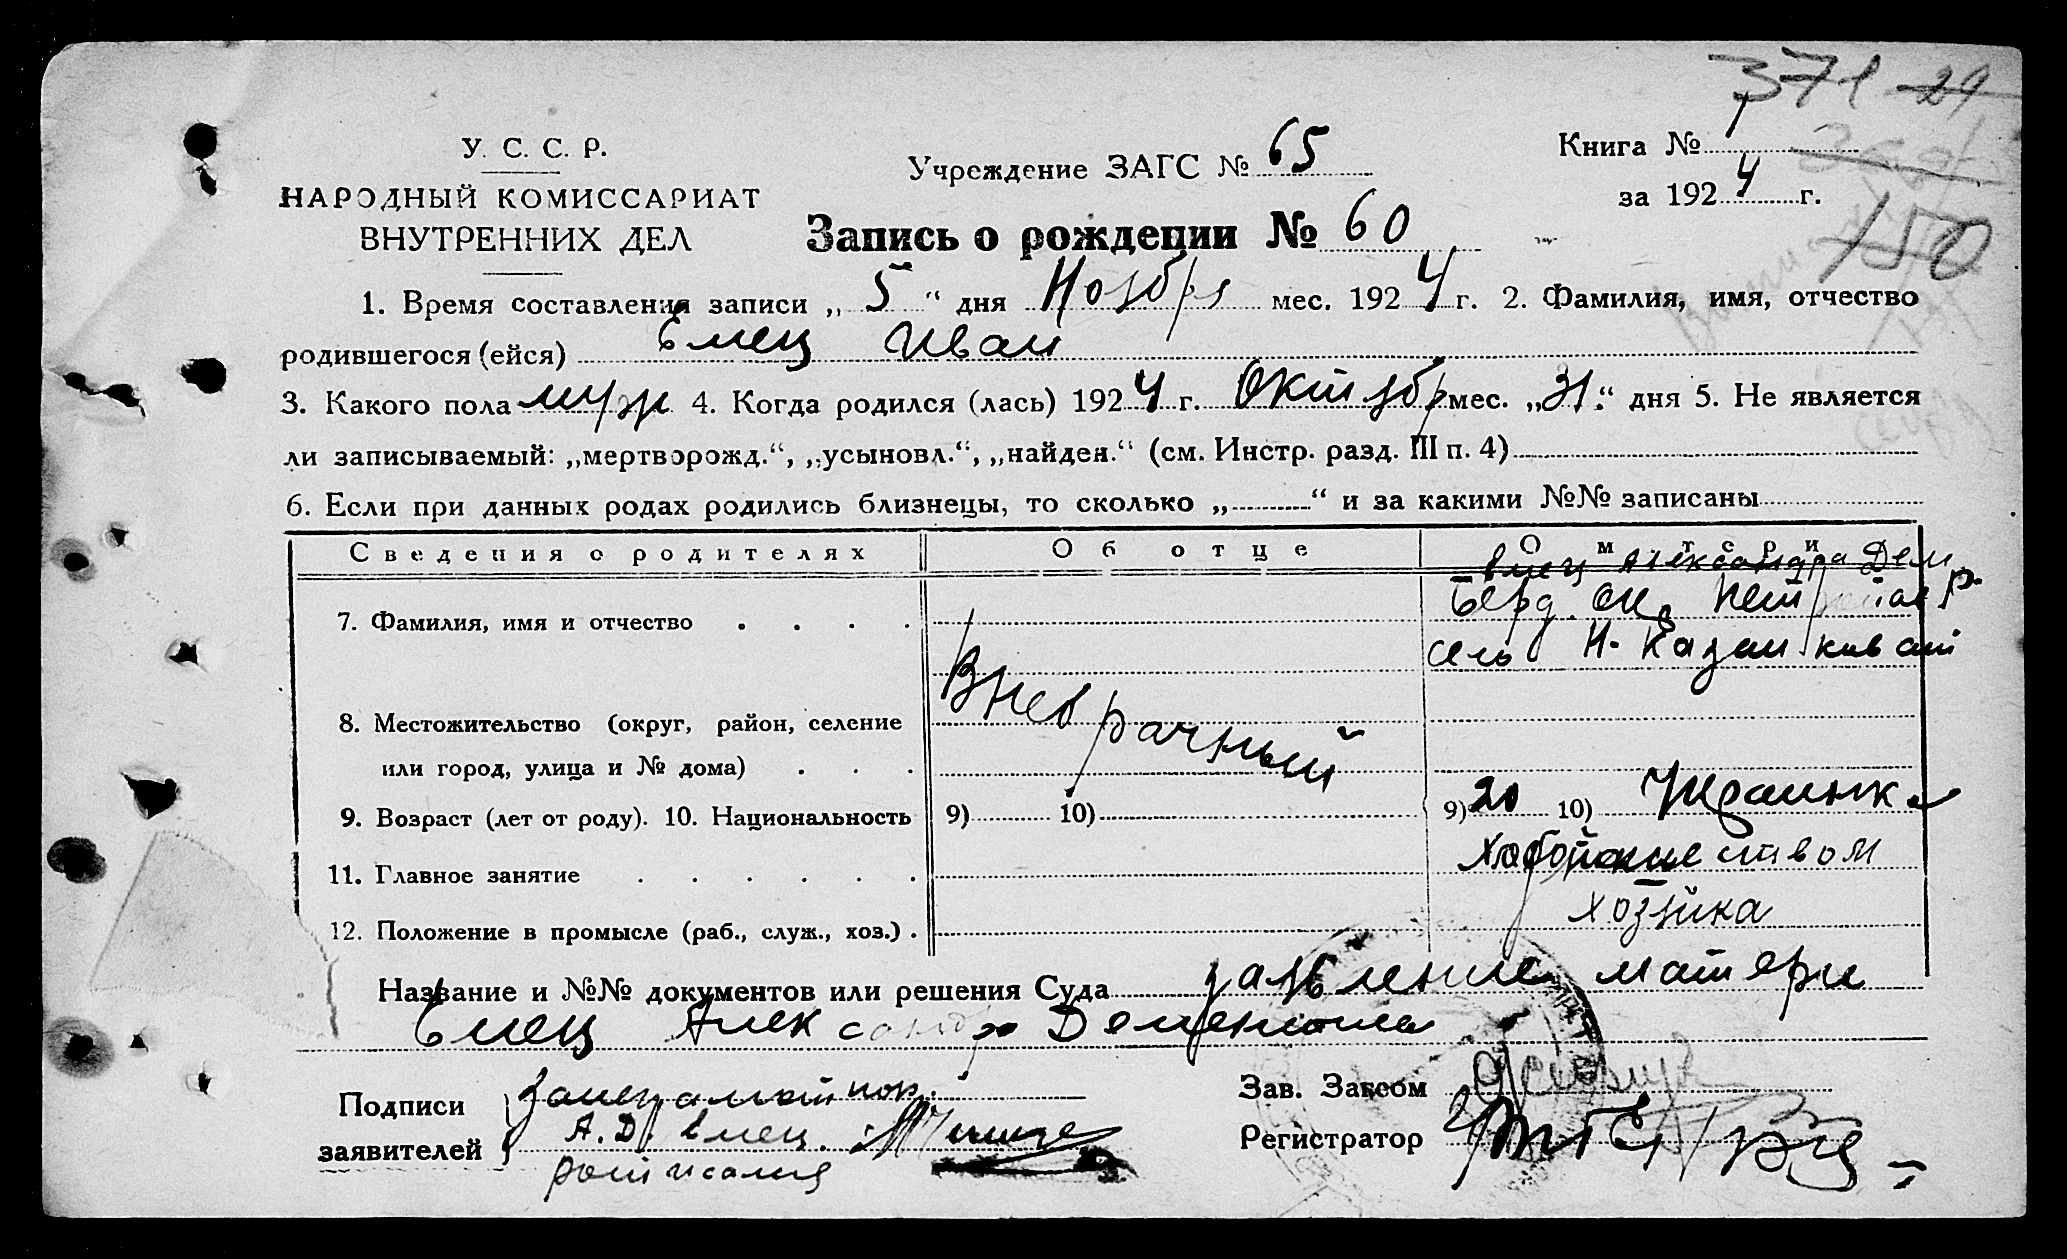 371 29
У. С. С. Р.
НАРОДНЫЙ КОМИССАРИАТ
ВНУТРЕННИХ ДЕЛ
Учреждение ЗАГС № 65
Книга № 1
за 1924 г.
150
Запись о рождении № 60
1. Время составления записи „ 5 “ дня Ноября мес. 1924 г. 2. Фамилия, имя, отчество
родившегося (ейся) Емец Иван
3. Какого пола муж 4. Когда родился (лась) 1924 г. Октябр мес. „31“ дня 5. Не является
ли записываемый: „мертворожд.“, „усыновл.“, „найден.“ (см. Инстр. разд. III п. 4)
6. Если при данных родах родились близнецы, то сколько „ “ и за какими №№ записаны
Сведения о родителях Об отце О матери
Емец Александра Дем.
7. Фамилия, имя и отчество
Берд. ок.
село Н-
Внебрачный
8. Местожительство (округ, район, селение
или город, улица и № дома)
9. Возраст (лет от роду). 10. Национальность 9) 10) 9) 20 10) Украинка
11. Главное занятие
12. Положение в промысле (раб., служ., хоз.) хозяйка
Название и №№ документов или решения Суда заявление матери
Емец Александр
Подписи
заявителей
А. Д. Емец.
Зав. Загсом
Регистратор